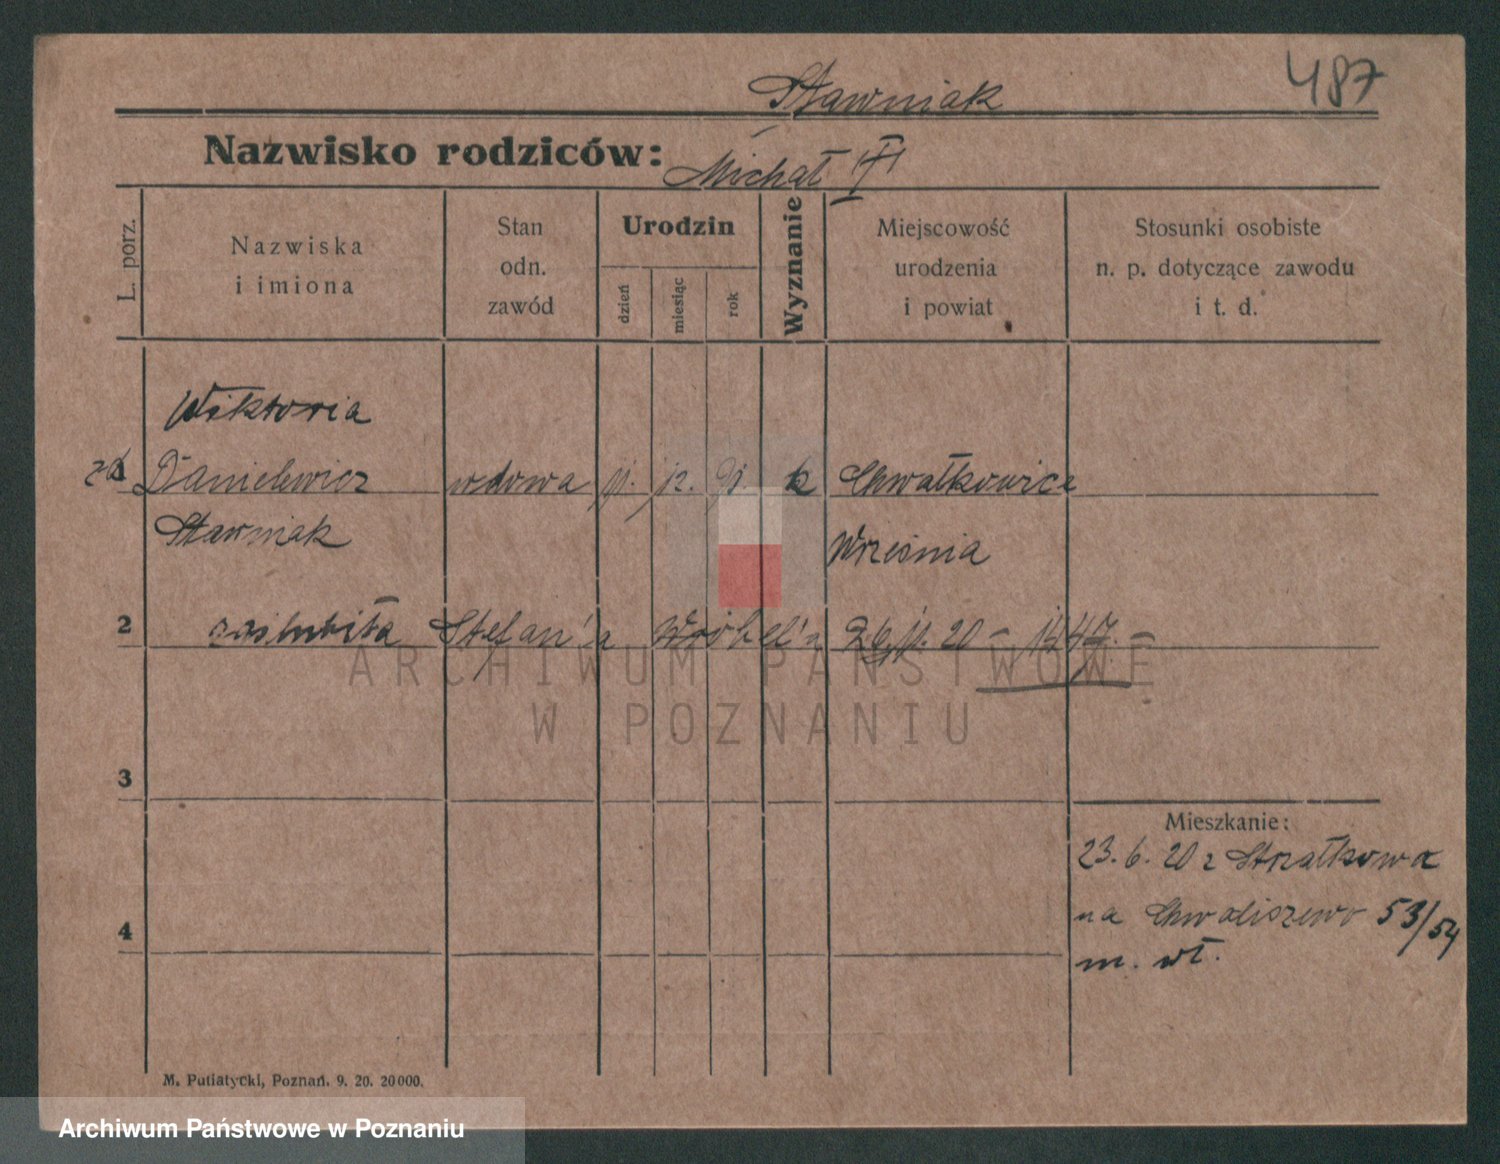 487
Stawniak
Nazwisko rodziców: Michał
L. porz.
Nazwiska
i imiona
Stan
odn.
zawód
Urodzin
dzień
miesiąc
rok
Wyznanie
Miejscowość
urodzenia
i powiat
Stosunki osobiste
n. p. dotyczące zawodu
i t. d.
Wiktoria
zd Danielewicz wdowa 12. k Chwałkowice
Stawniak Września
2 zaślubiła Stefan'a Wróbel'a 26.11.20
3
4
Mieszkanie:
23. 6. 20 z Strzałkowa
na Chwaliszewo 53/54
m. wł.
M. Putiatycki, Poznań. 9. 20. 20000.
ARCHIWUM PAŃSTWOWE
W POZNANIU
Archiwum Państwowe w Poznaniu